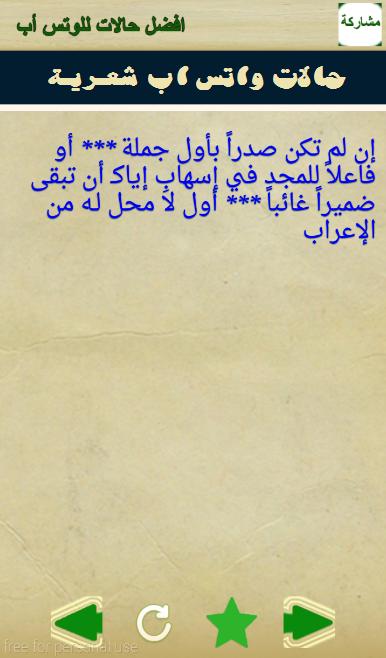 افضل حالات للوتس أب
مشاركة
حالات واتس اب شعرية
إن لم تكن صدراً بأول جملة *** أو
فاعلاً للمجد في إسهاب إياك أن تبقى
ضميراً غائباً *** أول لا محل له من
الإعراب
free for personal use